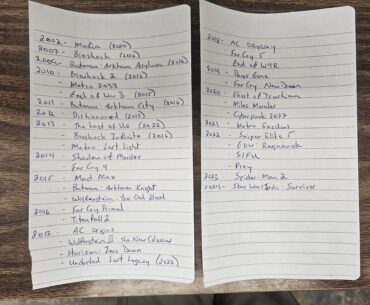 2002 - Mafia (2020)
2007 - Bioshock (2016)
2009 - Batman: Arkham Asylum (2016)
2010 - Bioshock 2 (2016)
- Metro 2033
- God of War 3 (2015)
2011 - Batman: Arkham City (2016)
2012 - Dishonored (2015)
2013 - The Last of Us (2022)
- Bioshock Infinite (2016)
- Metro Last Light
2014 - Shadow of Mordor
- Far Cry 4
2015 - Mad Max
- Batman: Arkham Knight
- Wolfenstein: The Old Blood
2016 - Far Cry Primal
- Titanfall 2
2017 - AC Origins
- Wolfenstein II: The New Colossus
- Horizon: Zero Dawn
- Uncharted: Lost Legacy (2022)
2018 - AC Odyssey
- Far Cry 5
- God of War
2019 - Days Gone
- Far Cry New Dawn
2020 - Ghost of Tsushima
- Miles Morales
- Cyberpunk 2077
2021 - Metro Exodus
2022 - Sniper Elite 5
- GOW: Ragnarok
- SIFU
- Prey
2023 - Spider-Man 2
- Star Wars Jedi: Survivor